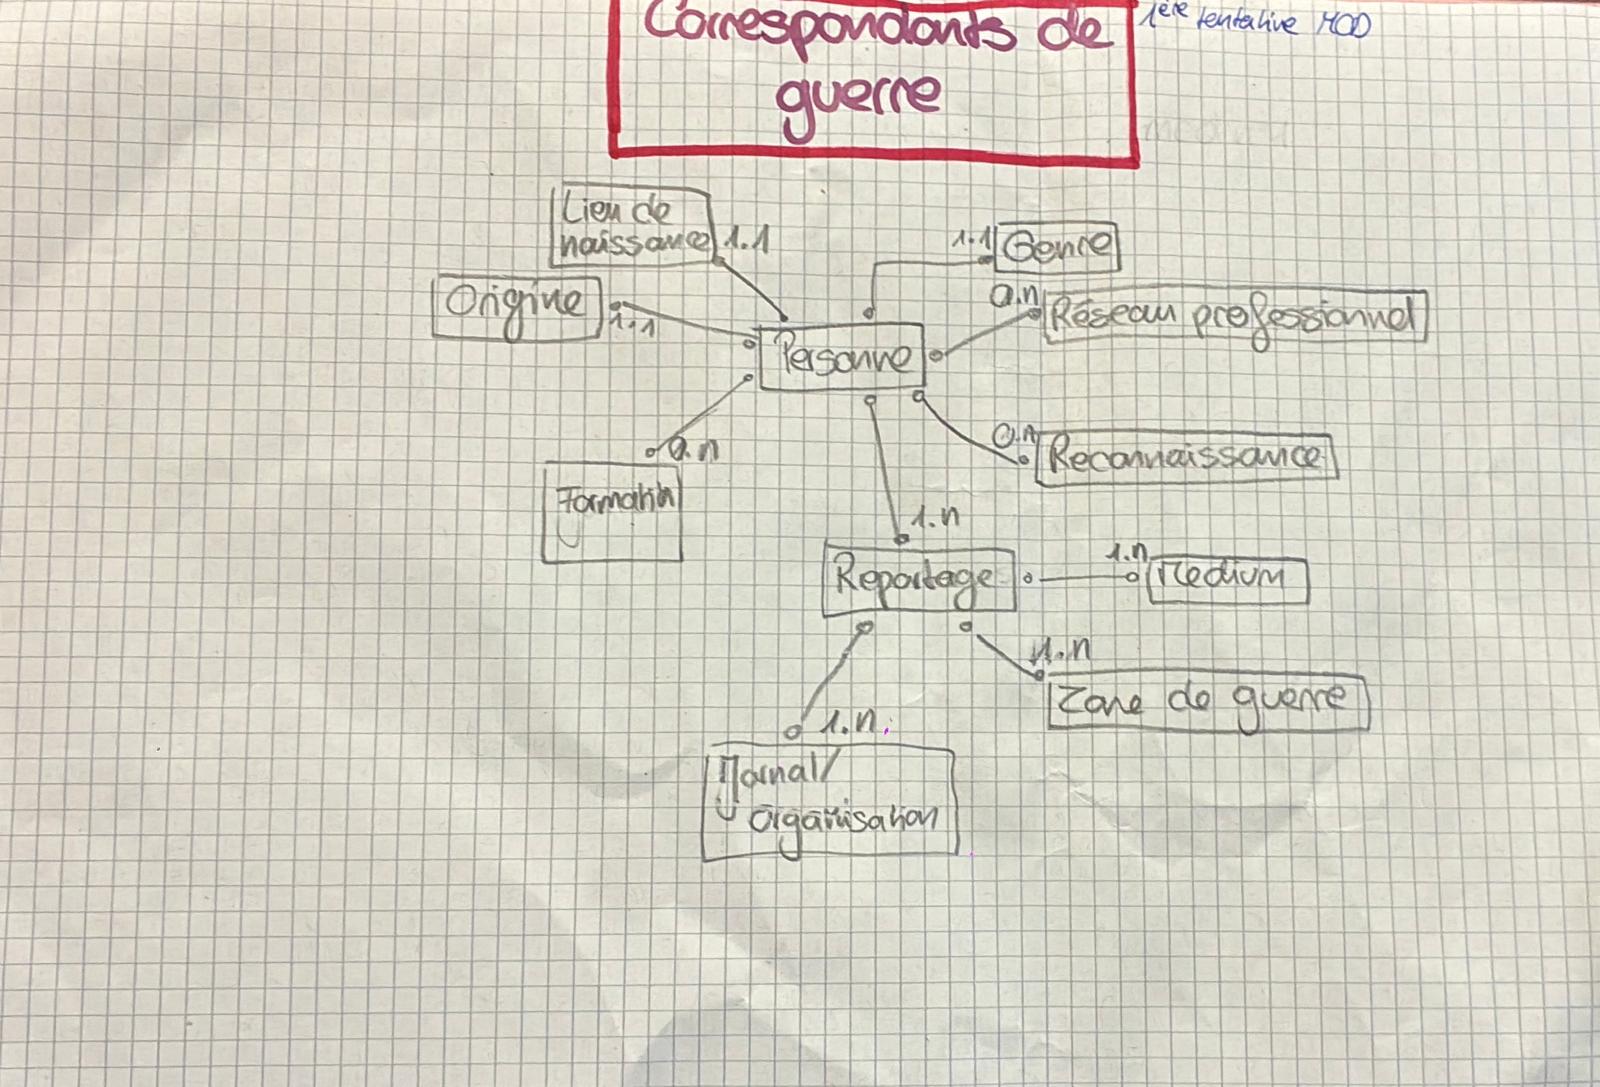 Correspondants de
guerre
1ère tentative MCD
Lieu de
naissance
1.1
1.1
Genre
Origine
1.1
0.n
Réseau professionnel
Personne
0.n
Formation
0.n
Reconnaissance
1.n
Reportage
1.n
Medium
1.n
Zone de guerre
1.n
Journal/
organisation